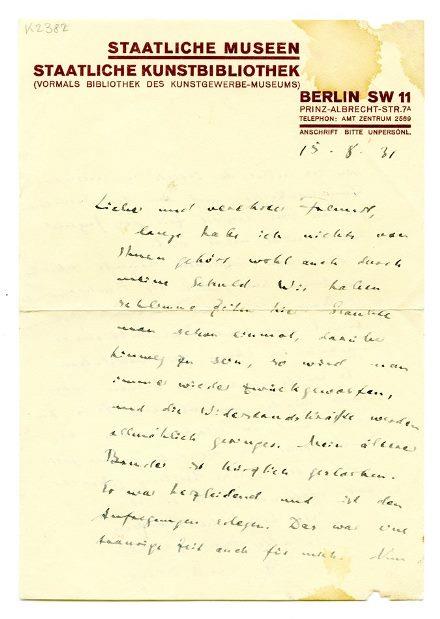 K2382
STAATLICHE MUSEEN
STAATLICHE KUNSTBIBLIOTHEK
(VORMALS BIBLIOTHEK DES KUNSTGEWERBE-MUSEUMS)
BERLIN SW 11
PRINZ-ALBRECHT-STR. 7A
TELEPHON: AMT ZENTRUM 2569
ANSCHRIFT BITTE UNPERSÖNL.
15. 8. 31
Lieber und verehrter Freund,
lange habe ich nichts von
Ihnen gehört, wohl auch durch
meine Schuld. Wir haben
schlimme Zeiten hier. Glaubte
man schon einmal, darüber
hinweg zu sein, so wird man
immer wieder zurückgeworfen,
und die Widerstandskräfte werden
allmählich geringer. Mein älterer
Bruder ist kürzlich gestorben.
Er war herzleidend und ist den
Aufregungen erlegen. Das war eine
traurige Zeit auch für mich. Nun